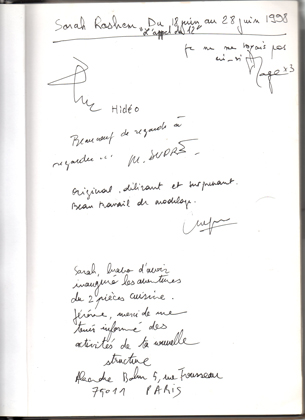 Sarah Du 18 juin au 28 juin 1998
"L'appel du 12"
Je ne me voyais pas
ainsi
x3
HIDÉO
Beaucoup de regards à
regarder...
M. ANDRÉ
original, délirant et surprenant.
Beau travail de modelage.
Sarah, bravo d'avoir
inauguré les aventures
du 2 pièces cuisine.
Jérôme, merci de me
tenir informé des
activités de la nouvelle
structure
Alexandre 5, rue
75011 PARIS